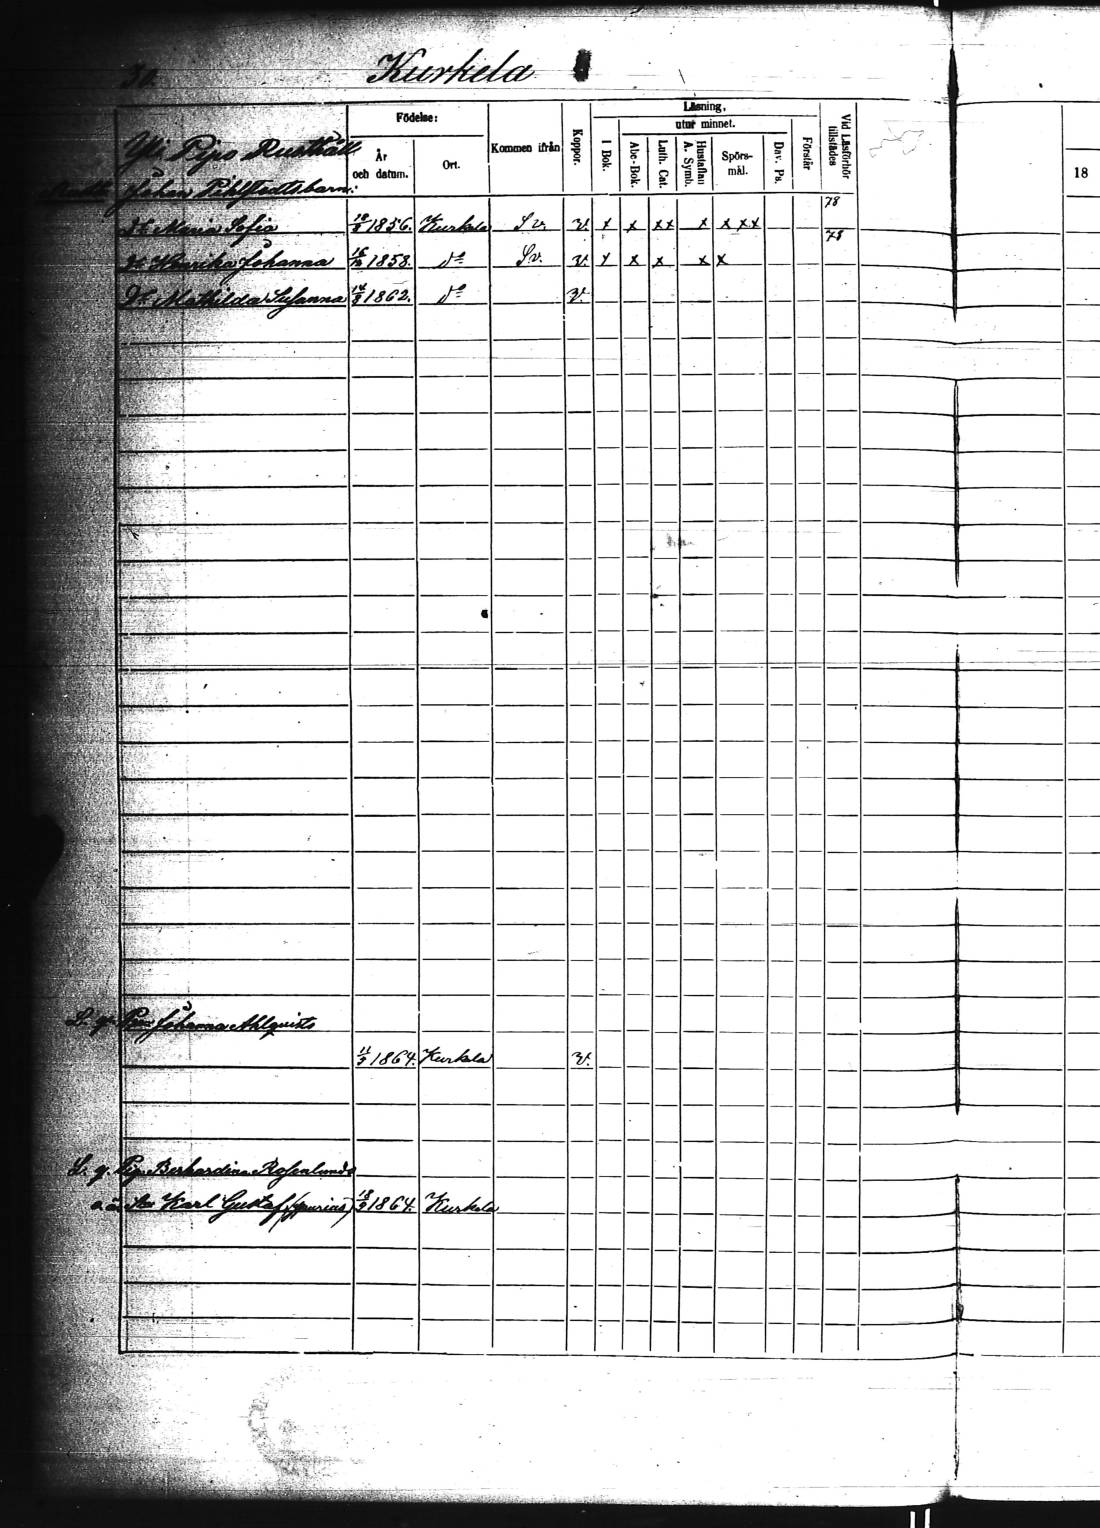 30.
Kurkela
Födelse:
År och datum.
Ort.
Kommen ifrån
Koppor.
Läsning,
utur minnet.
I Bok.
Abc-Bok.
Luth. Cat.
Hustaflan A. Symb.
Spörs-mål.
Dav. Ps.
Förstår
Vid Läsförhör tillstädes
18
Pipo Rusthåll
Johan Pihlstedts barn:
Dr. Maria Sofia 10/ 1856. Kurkela Sv. v. x x xx x xxx 78
Dr. Henrika Johanna 16/ 1858. do Sv. v. x x x x x 78
Dr. Mathilda Susanna 14/ 1862. do v.
Johanna Ahlqvists
11/ 1864. Kurkela v.
Pig. Bernardina Rosenlunds
Karl Gustaf (spurius) 18/ 1864. Kurkela